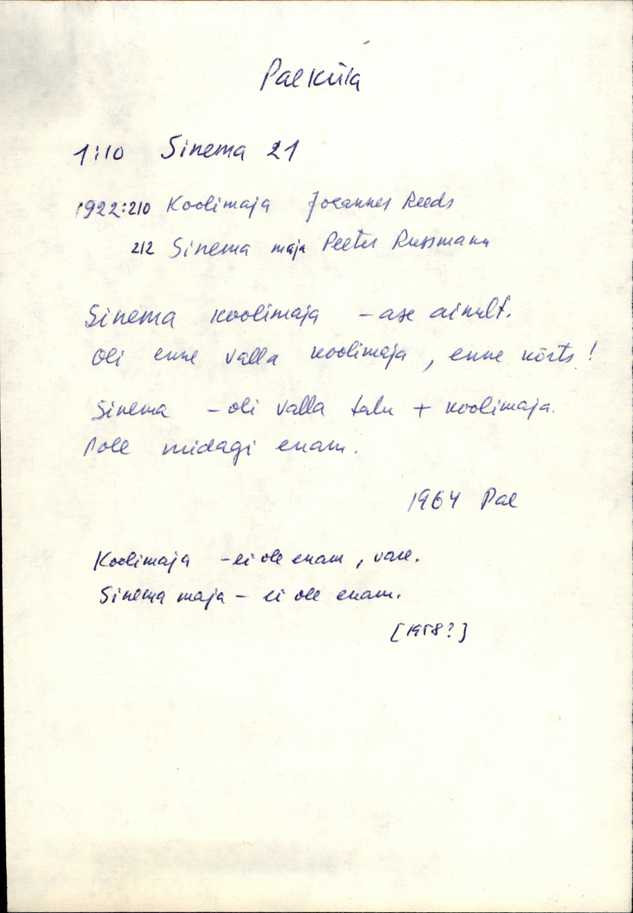 Paeküla
1:10 Sinema 21
1922:210 Koolimaja Joeannes Reeds
212 Sinema maja Peeter Russmann
Sinema koolimaja - ase ainult.
Oli enne valla koolimaja, enne kõrts!
Sinema - oli valla talu + koolimaja.
Pole midagi enam.
1964 Pae
Koolimaja - ei ole enam, vare.
Sinema maja - ei ole enam.
[1958?]